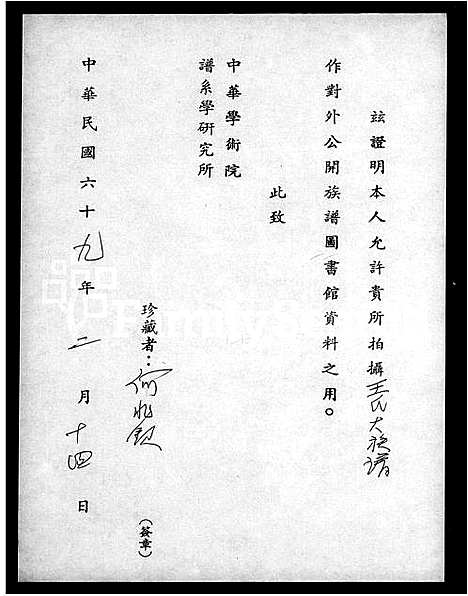 茲證明本人允許貴所拍攝王氏大族譜
作對外公開族譜圖書館資料之用。
此致
中華學術院
譜系學研究所
珍藏者：何兆欽
（簽章）
中華民國六十九年二月十四日